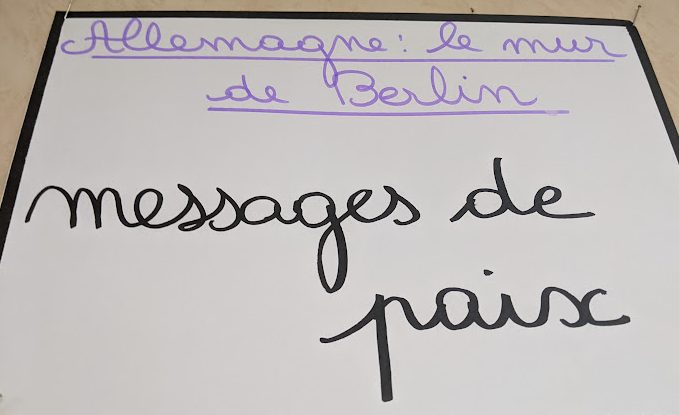 Allemagne: le mur
de Berlin
messages de
paix